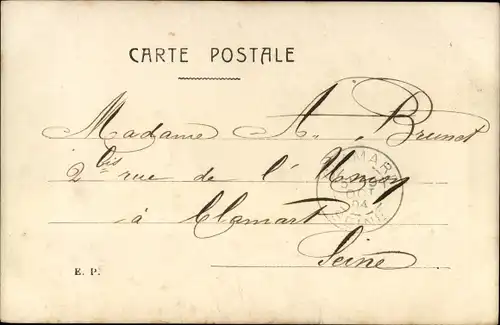 CARTE POSTALE
Madame A. Brunot
2 bis rue de l'Union
à Clamart
Seine
CLAMART
OCT
04
SEINE
E. P.